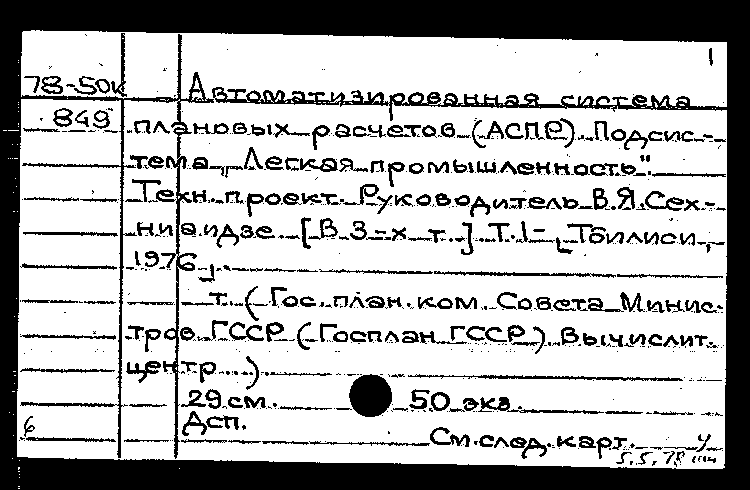 1
78-50к Автоматизированная система
849 плановых расчетов (АСПР). Подсис-
тема „Легкая промышленность".
Техн. проект. Руководитель В.Я.Сех-
ниаидзе. [В 3-х т.] Т.1- Тбилиси,
1976.
т. (Гос. план. ком. Совета Минис-
тров ГССР (Госплан ГССР). Вычислит.
центр...).
29 см. 50 экз.
Дсп.
6 См. след. карт.
5.5.78